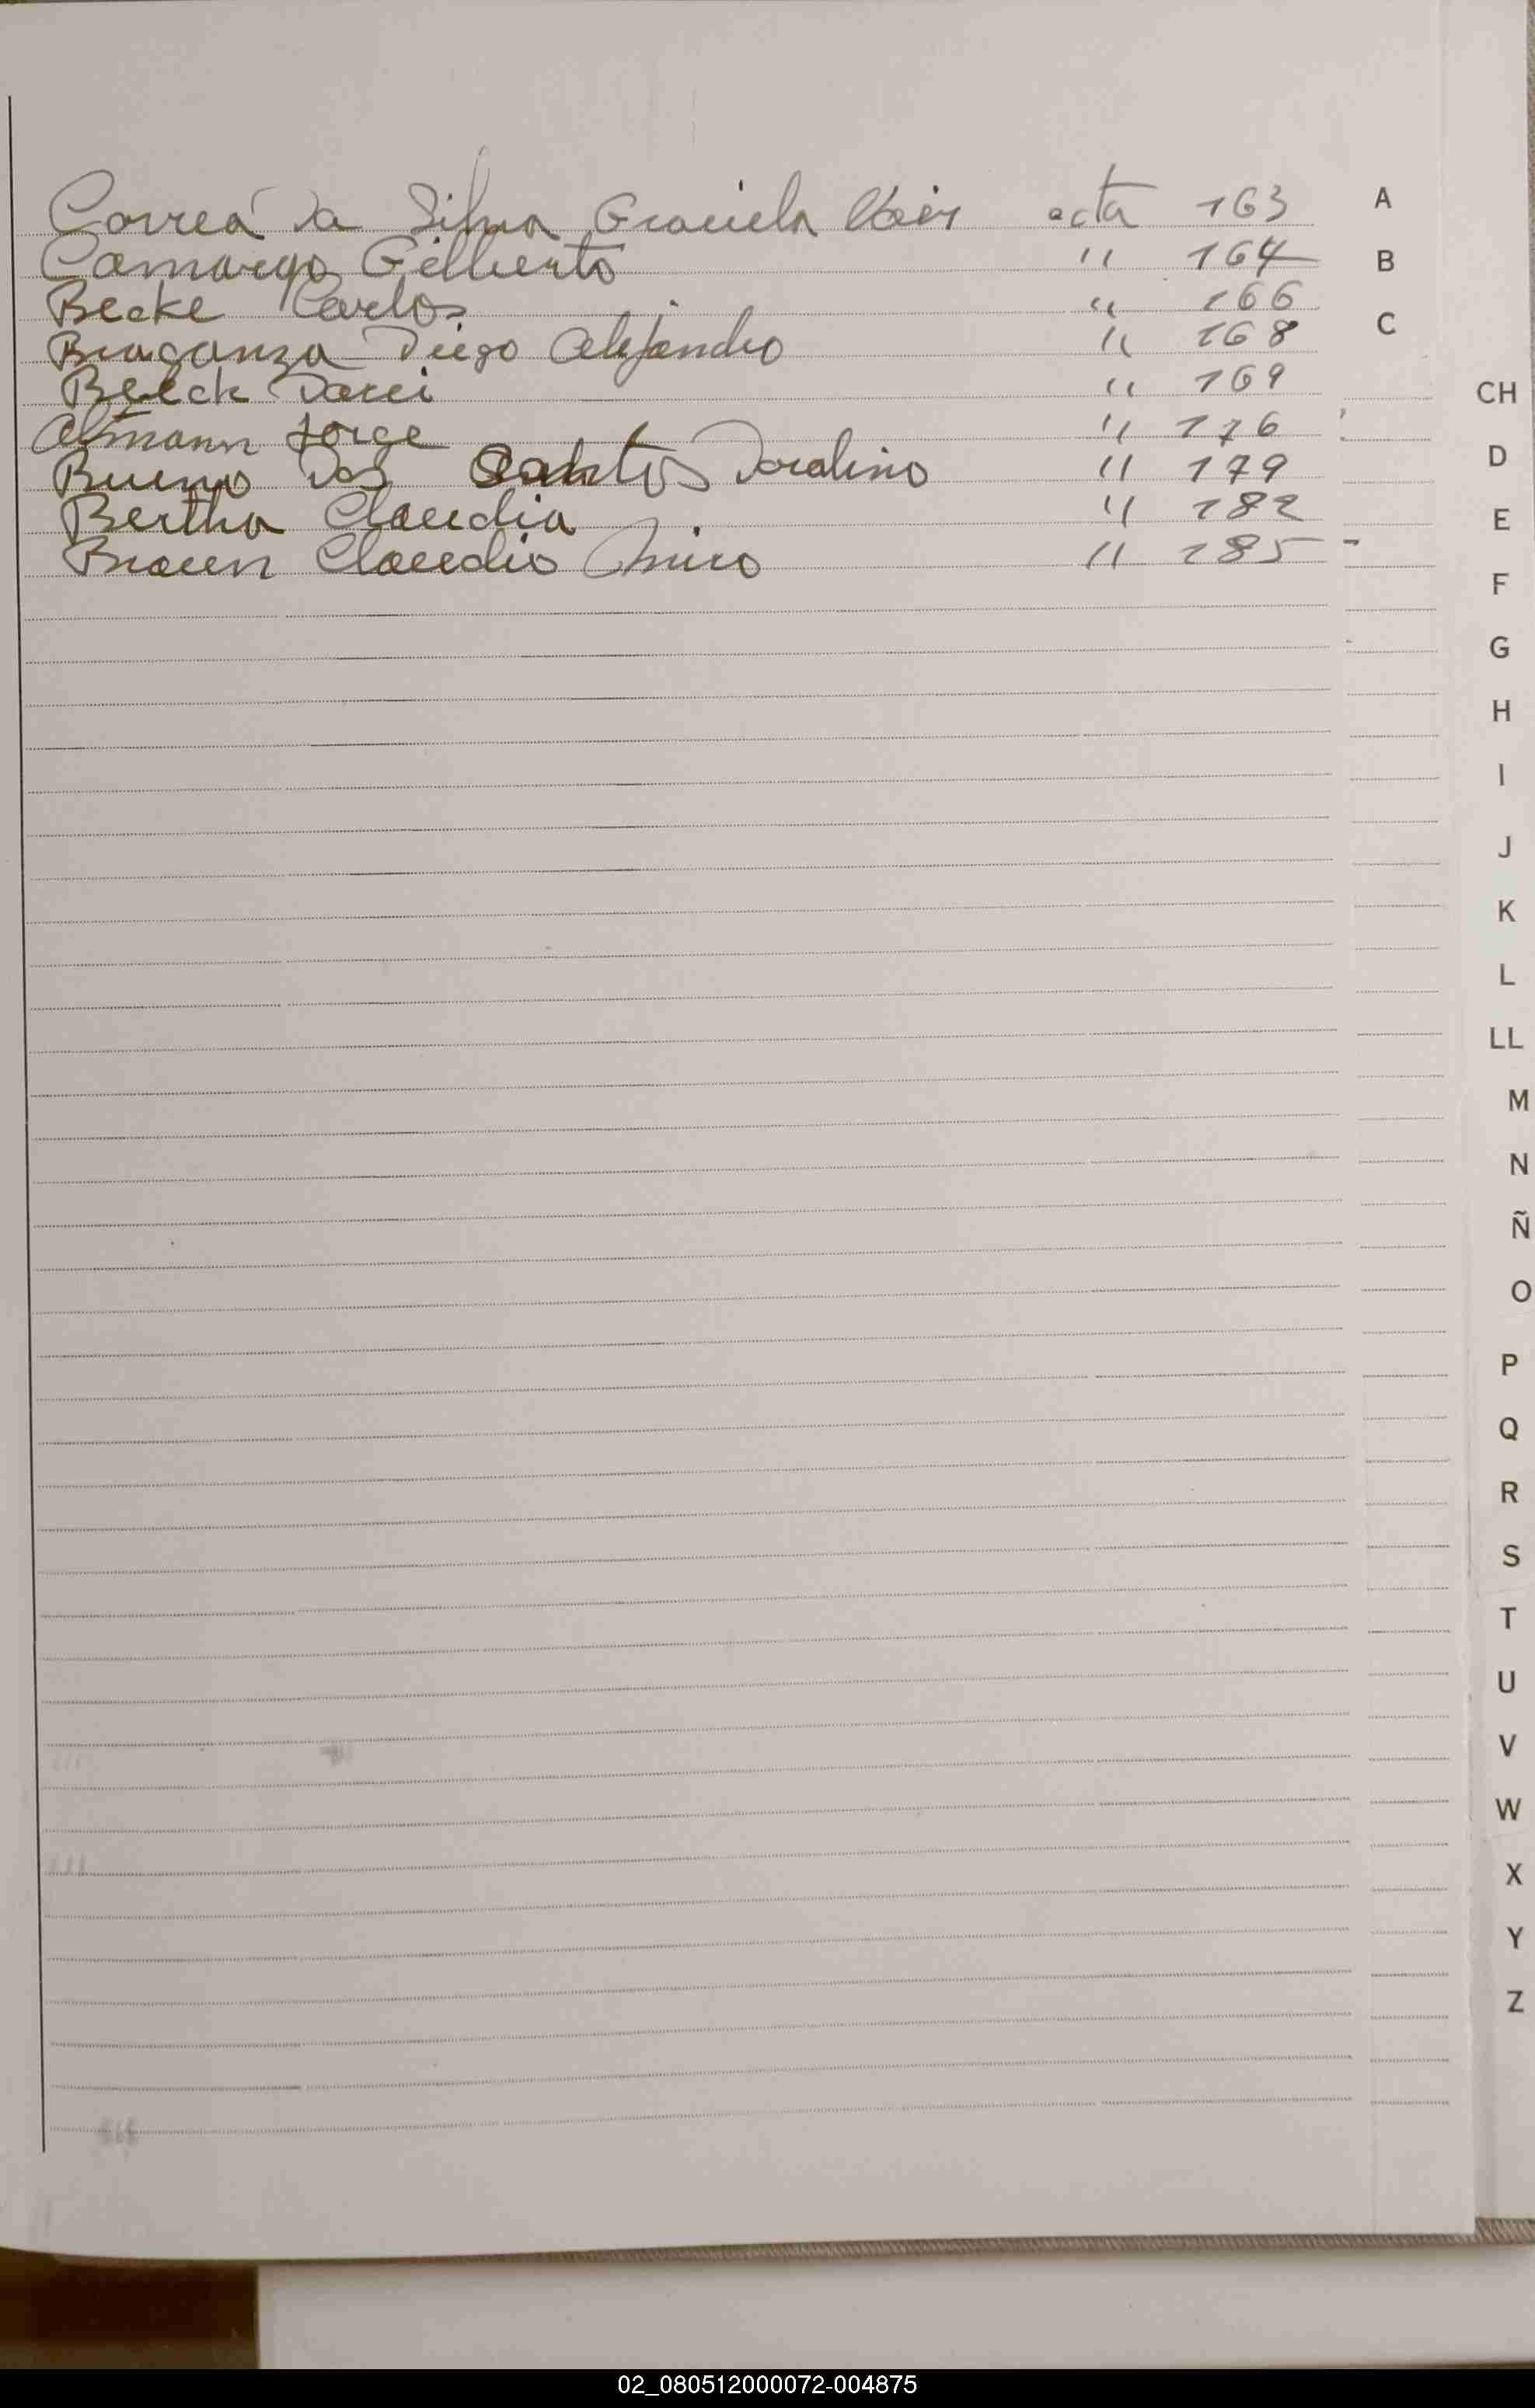 Correa da Silva Graciela acta 163
Camargo Gilberto " 164
Becke Carlos " 166
Braganza Diego Alejandro " 168
Belck Darci " 169
Altmann Jorge " 176
Bueno Dos Santos Doralino " 179
Bertha Claudia " 182
Braun Claudio " 185
A
B
C
CH
D
E
F
G
H
I
J
K
L
LL
M
N
Ñ
O
P
Q
R
S
T
U
V
W
X
Y
Z
02_080512000072-004875